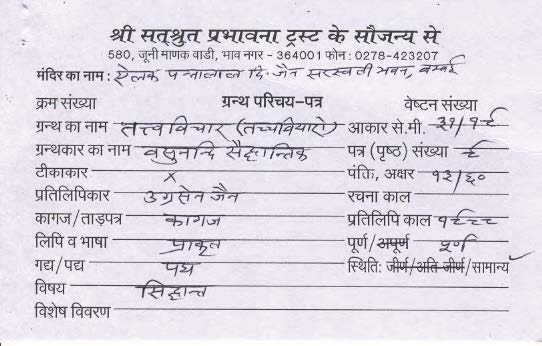 श्री सत्श्रुत प्रभावना ट्रस्ट के सौजन्य से
580, जूनी माणक वाडी, भाव नगर - 364001 फोन : 0278-423207
मंदिर का नाम : ऐलक पन्नालाल दि. जैन सरस्वती भवन, बम्बई
क्रम संख्या ग्रन्थ परिचय-पत्र वेष्टन संख्या
ग्रन्थ का नाम तत्त्वविचार (तच्चवियारो) आकार से.मी. २१/१९
ग्रन्थकार का नाम वसुनन्दि सैद्धान्तिक पत्र (पृष्ठ) संख्या ९
टीकाकार × पंक्ति, अक्षर १२/६०
प्रतिलिपिकार उग्रसेन जैन रचना काल
कागज/ताड़पत्र कागज प्रतिलिपि काल १९८८
लिपि व भाषा प्राकृत पूर्ण/अपूर्ण पूर्ण
गद्य/पद्य पद्य स्थिति: जीर्ण/अति जीर्ण/सामान्य
विषय सिद्धान्त
विशेष विवरण